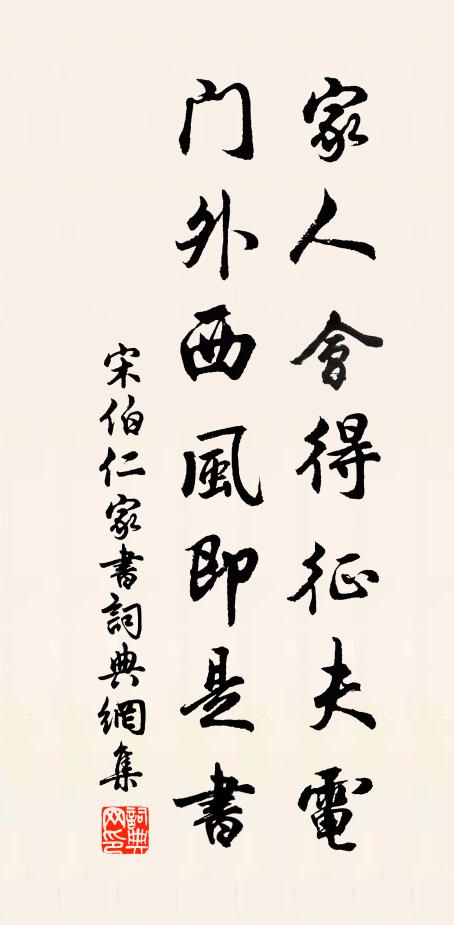 家人會得征夫電
门外西風即是書
宋伯仁家書詞典網集
詞典网印